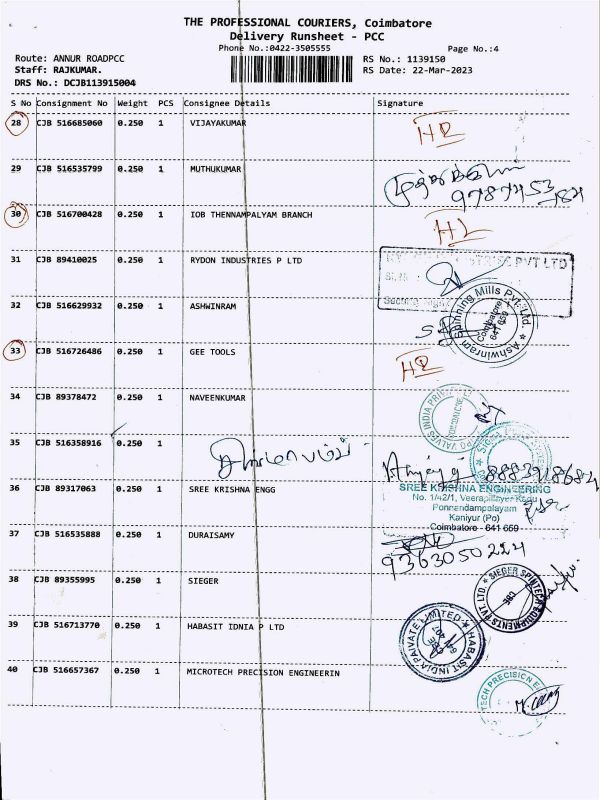 THE PROFESSIONAL COURIERS, Coimbatore
Delivery Runsheet - PCC
Phone No.:0422-3505555
Page No.:4
Route: ANNUR ROADPCC
RS No.: 1139150
Staff: RAJKUMAR.
RS Date: 22-Mar-2023
DRS No.: DCJB113915004
S No Consignment No Weight PCS Consignee Details Signature
28 CJB 516685060 0.250 1 VIJAYAKUMAR
29 CJB 516535799 0.250 1 MUTHUKUMAR
30 CJB 516700428 0.250 1 IOB THENNAMPALYAM BRANCH
31 CJB 89410025 0.250 1 RYDON INDUSTRIES P LTD
PVT LTD
32 CJB 516629932 0.250 1 ASHWINRAM
Ashwinram Spinning Mills Pvt. Ltd.
Coimbatore
641 659
33 CJB 516726486 0.250 1 GEE TOOLS
34 CJB 89378472 0.250 1 NAVEENKUMAR
VALVES INDIA
35 CJB 516358916 0.250 1
36 CJB 89317063 0.250 1 SREE KRISHNA ENGG
SREE KRISHNA ENGINEERING
No. 1/42/1, Veerapillayar
Ponnandampolayam
Kaniyur (Po)
Coimbatore - 641 659
37 CJB 516535888 0.250 1 DURAISAMY
9363050224
38 CJB 89355995 0.250 1 SIEGER
SIEGER SPINTECH EQUIPMENTS PVT. LTD.
CBE
39 CJB 516713770 0.250 1 HABASIT IDNIA P LTD
HABASIT INDIA PRIVATE LIMITED
40 CJB 516657367 0.250 1 MICROTECH PRECISION ENGINEERIN
TECH PRECISION